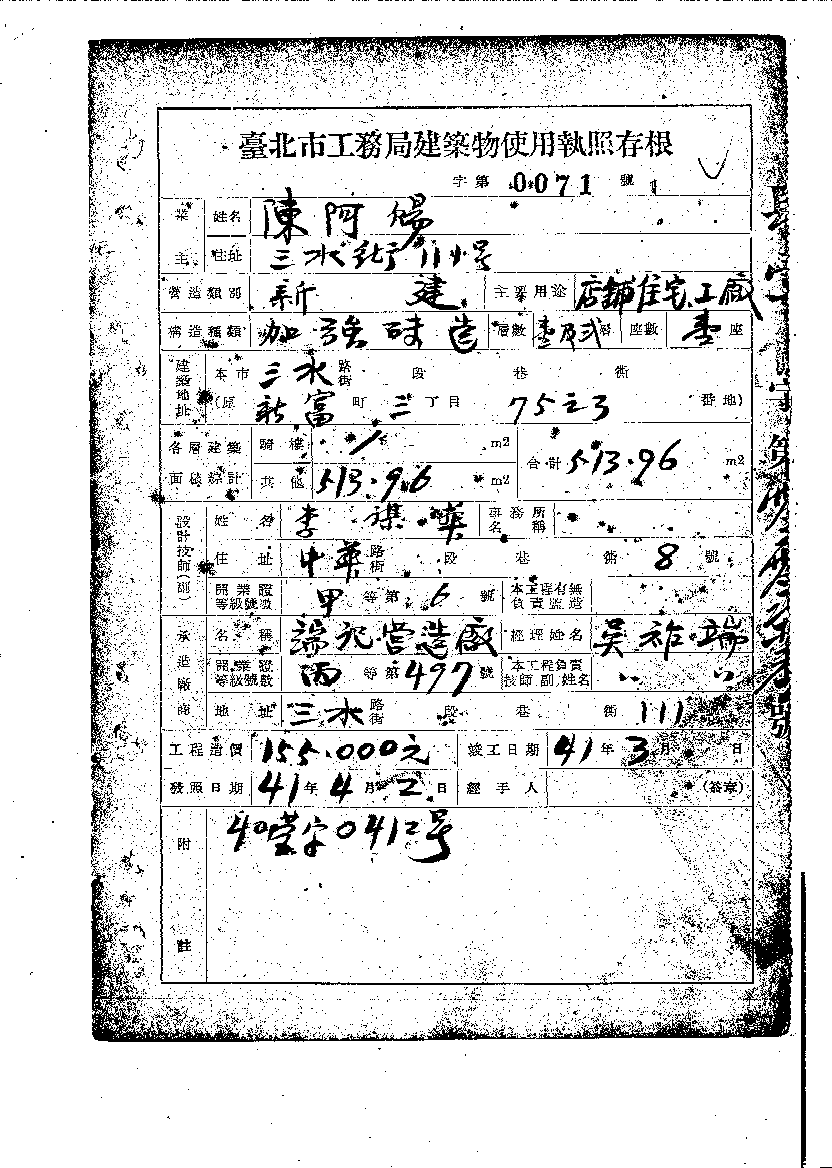 臺北市工務局建築物使用執照存根
字第0071號
業主 姓名 陳阿
住址 三水街
營造類別 新建 主要用途 店舖住宅工廠
構造種類 加強磚造 層數 壹及貳層 座數 壹座
建築地址 本市 三水 路街 段 巷 衖
(原 新富町三丁目 75之3 番地)
各層建築面積綜計 騎樓 / m2 合計 513.96 m2
其他 513.96 m2
設計技師(副) 姓名 李 事務所名稱
住址 中華 路街 段 巷 衖 8 號
開業證等級號數 甲等第6號 本工程有無負責監造
承造廠商 名稱 端記營造廠 經理姓名 吳祚端
開業證等級號數 丙等第497號 本工程負責技師(副)姓名 〃 〃
地址 三水 路街 段 巷 衖 111
工程造價 155.000元 竣工日期 41年3月 日
發照日期 41年4月2日 經手人 (簽章)
附註 40營字0412号
字第
號